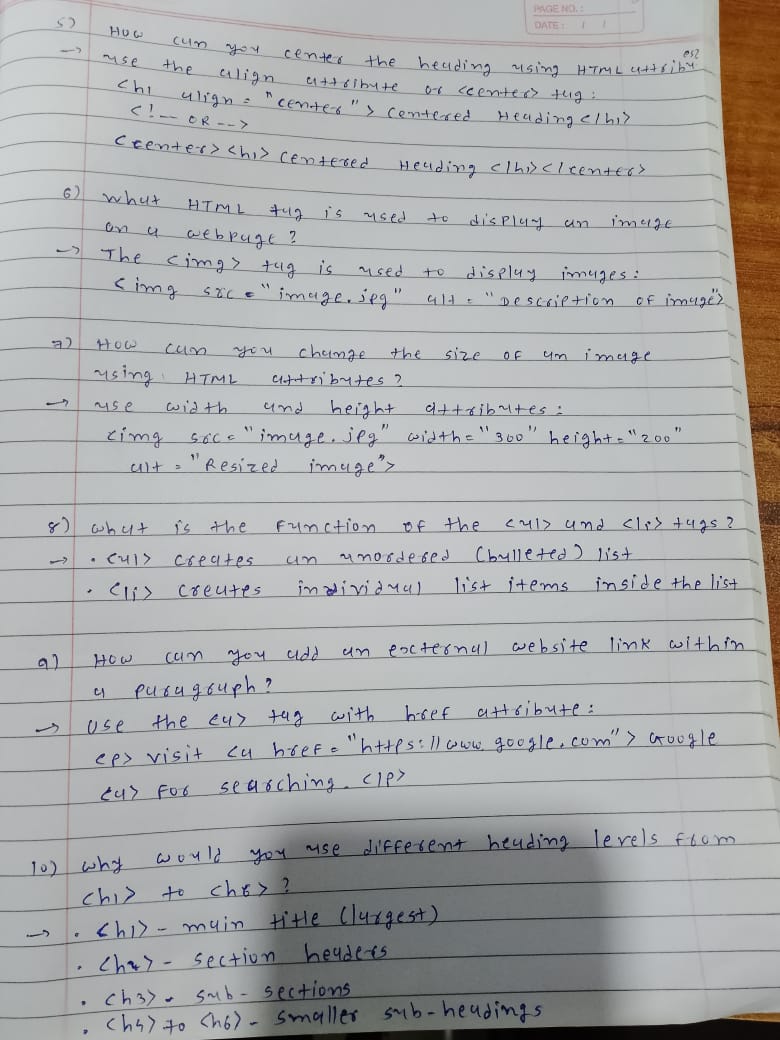 PAGE NO.:
DATE: / /
5) How can you center the heading using HTML attributes?
→ use the align attribute or <center> tag:
<h1 align = "center"> centered Heading </h1>
<!-- OR -->
<center> <h1> centered Heading </h1> </center>
6) what HTML tag is used to display an image
on a webpage?
→ The <img> tag is used to display images:
<img src = "image.jpg" alt = "Description of image">
7) How can you change the size of an image
using HTML attributes?
→ use width and height attributes:
<img src = "image.jpg" width = "300" height = "200"
alt = "Resized image">
8) what is the function of the <ul> and <li> tags?
→ • <ul> creates an unordered (bulleted) list
• <li> creates individual list items inside the list
9) How can you add an external website link within
a paragraph?
→ Use the <a> tag with href attribute:
<p> visit <a href = "https://www.google.com"> Google
<a> for searching. </p>
10) why would you use different heading levels from
<h1> to <h6>?
→ • <h1> - main title (largest)
• <h2> - section headers
• <h3> - sub-sections
• <h4> to <h6> - smaller sub-headings